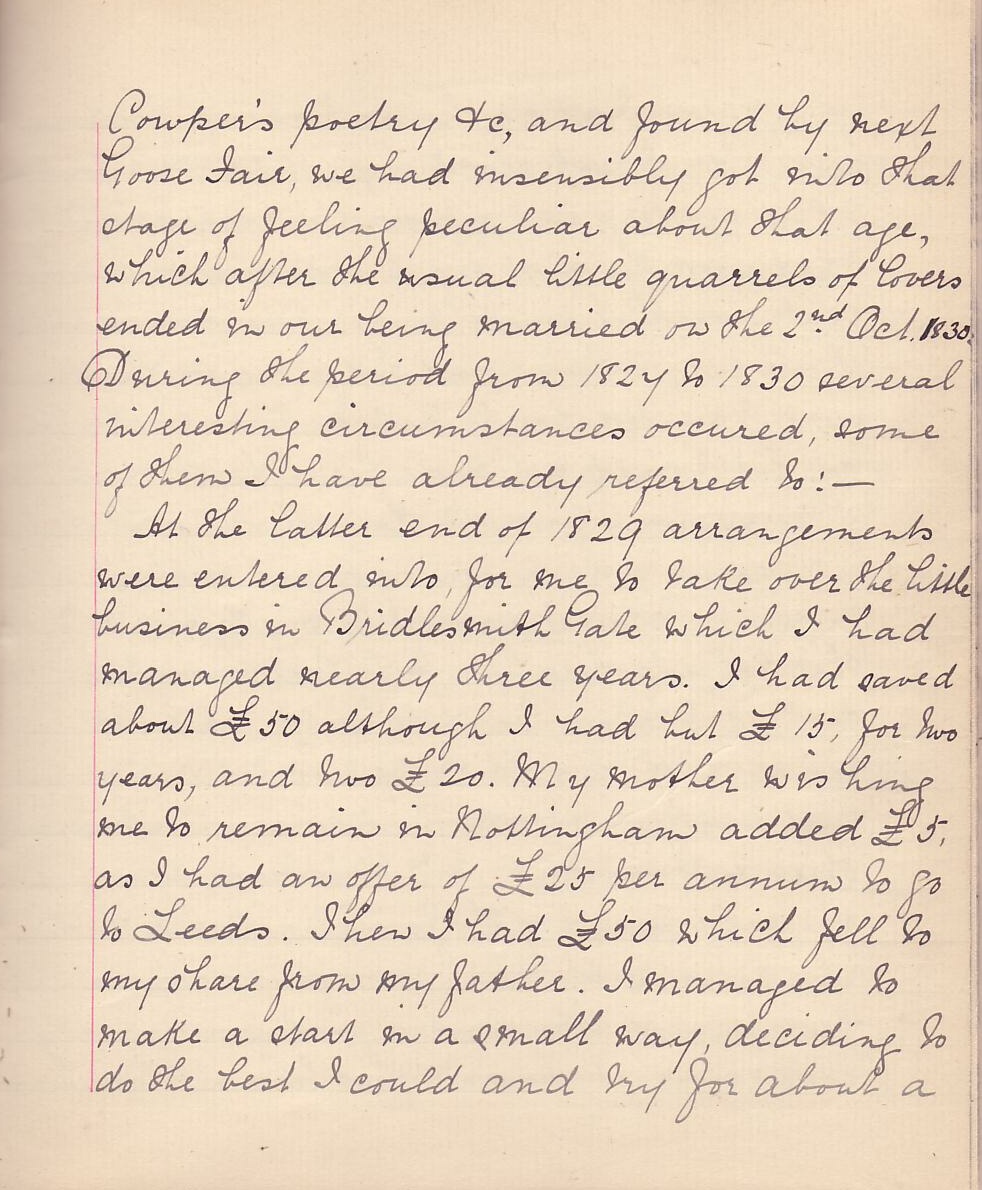 Cowper's poetry &c, and found by next
Goose Fair, we had insensibly got into that
stage of feeling peculiar about that age,
which after the usual little quarrels of lovers
ended in our being married on the 2nd Oct. 1830.
During the period from 1824 to 1830 several
interesting circumstances occured, some
of them I have already referred to:—
At the latter end of 1829 arrangements
were entered into, for me to take over the little
business in Bridlesmith Gate which I had
managed nearly three years. I had saved
about £50 although I had but £15, for two
years, and two £20. My mother wishing
me to remain in Nottingham added £5,
as I had an offer of £25 per annum to go
to Leeds. Then I had £50 which fell to
my share from my father. I managed to
make a start in a small way, deciding to
do the best I could and try for about a